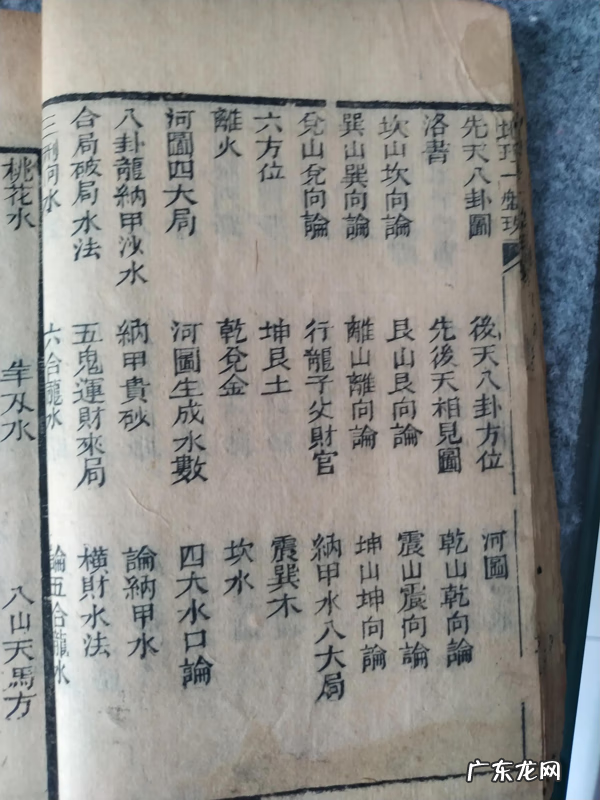 地理一盤珠
先天八卦圖 後天八卦方位 河圖
洛書 先後天相見圖 乾山乾向論
坎山坎向論 艮山艮向論 震山震向論
巽山巽向論 離山離向論 坤山坤向論
兌山兌向論 行龍子父財官 納甲水八大局
六方位 坤艮土 震巽木
離火 乾兌金 坎水
河圖四大局 河圖生成水數 四大水口論
八卦龍納甲沙水 納甲貴砂 論納甲水
合局破局水法 五鬼運財來局 橫財水法
三刑 水 六合龍水 論五合龍水
桃花水 羊刄水 八山天馬方
广东龙网